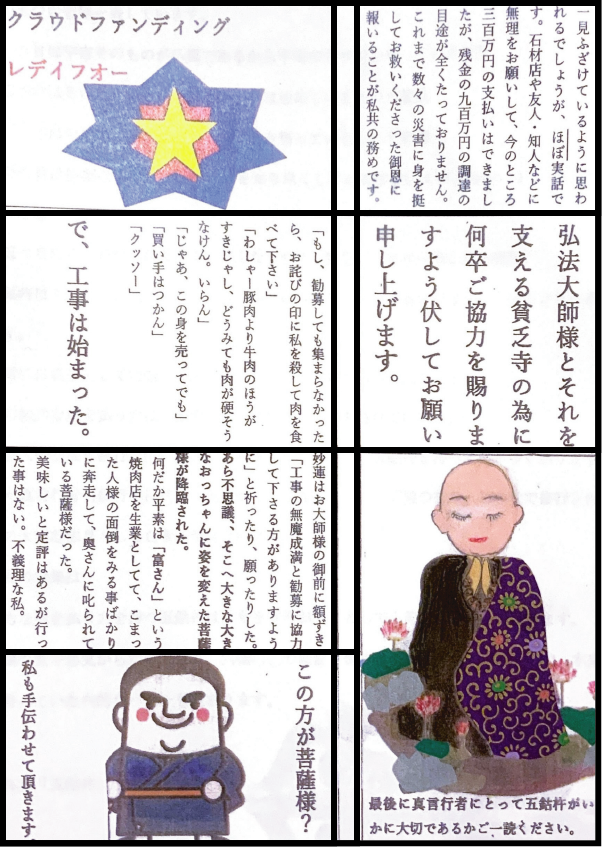 クラウドファンディング
レディフオー
一見ふざけているように思わ
れるでしょうが、ほぼ実話で
す。石材店や友人・知人などに
無理をお願いして、今のところ
三百万円の支払いはできまし
たが、残金の九百万円の調達の
目途が全くたっておりません。
これまで数々の災害に身を挺
してお救いくださった御恩に
報いることが私共の務めです。
「もし、勧募しても集まらなかった
ら、お詫びの印に私を殺して肉を食
べて下さい」
「わしゃー豚肉より牛肉のほうが
すきじゃし、どうみても肉が硬そう
なけん。いらん」
「じゃあ、この身を売ってでも」
「買い手はつかん」
「クッソー」
で、工事は始まった。
弘法大師様とそれを
支える貧乏寺の為に
何卒ご協力を賜りま
すよう伏してお願い
申し上げます。
妙蓮はお大師様の御前に額ずき
「工事の無魔成満と勧募に協力
して下さる方がありますよう
に」と祈ったり、願ったりした。
あら不思議、そこへ大きな大き
なおっちゃんに姿を変えた菩薩
様が降臨された。
何だか平素は「富さん」という
焼肉店を生業としてて、こまっ
た人様の面倒をみる事ばかり
に奔走して、奥さんに叱られて
いる菩薩様だった。
美味しいと定評はあるが行っ
た事はない。不義理な私。
この方が菩薩様？
私も手伝わせて頂きます。
最後に真言行者にとって五鈷杵がい
かに大切であるかご一読ください。